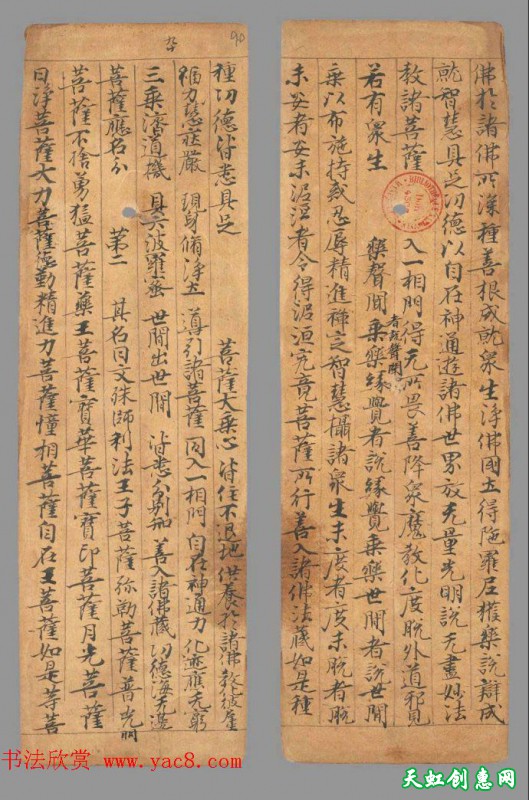 佛於諸佛所深種善根成就眾生淨佛國土得陁羅尼獲樂說辯成
就智慧具足功德以自在神通遊諸佛世界放无量光明說无盡妙法
教諸菩薩 入一相門得无所畏善降眾魔教化度脫外道邪見
若有眾生 樂聲聞者說聲聞乘樂緣覺者說緣覺乘樂世間者說世間
乘以布施持戒忍辱精進禪定智慧攝諸眾生未度者度未脫者脫
未安者安未泥洹者令得泥洹究竟菩薩所行善入諸佛法藏如是種
90
種功德皆悉具足 菩薩大乘心 皆住不退地 供養於諸佛
福力慧莊嚴 現身脩淨土 導引諸菩薩 同入一相門 自在神通力 化變應无窮
三乘濟道機 具 波羅蜜 世間出世間 皆悉分別知 善入諸佛藏 功德海无邊
菩薩應名分 第二 其名曰文殊師利法王子菩薩弥勒菩薩普光明
菩薩不捨勇猛菩薩藥王菩薩寶華菩薩寶印菩薩月光菩薩
日淨菩薩大力菩薩 勤精進力菩薩幢相菩薩自在王菩薩如是等菩
书法欣赏 www.yac8.com
天虹创惠网